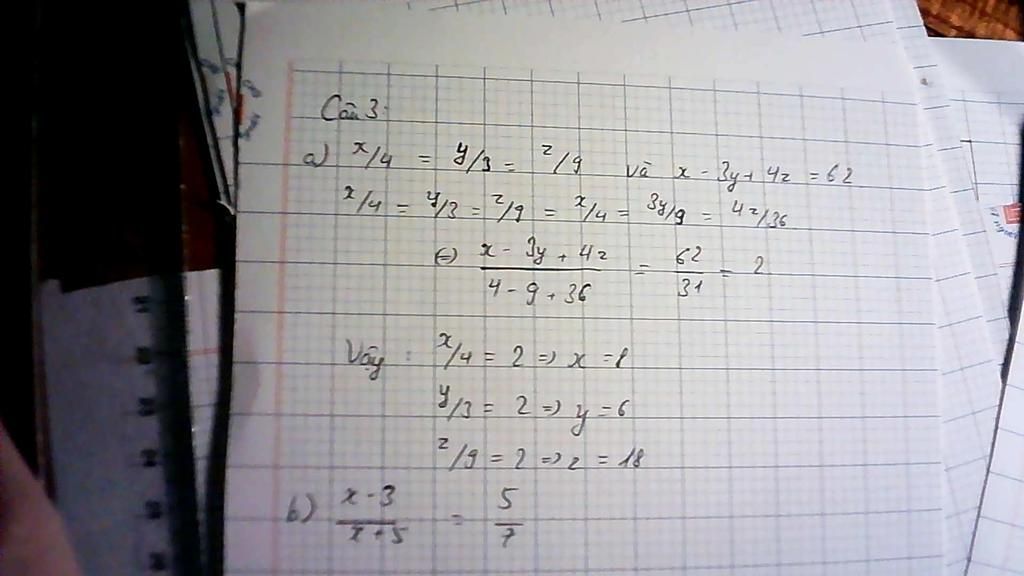 Câu 3:
a) x/4 = y/3 = z/9 và x - 3y + 4z = 62
x/4 = y/3 = z/9 = x/4 = 3y/9 = 4z/36
(=) \frac{x - 3y + 4z}{4 - 9 + 36} = \frac{62}{31} = 2
Vậy : x/4 = 2 => x = 8
y/3 = 2 => y = 6
z/9 = 2 => z = 18
b) \frac{x - 3}{x + 5} = \frac{5}{7}